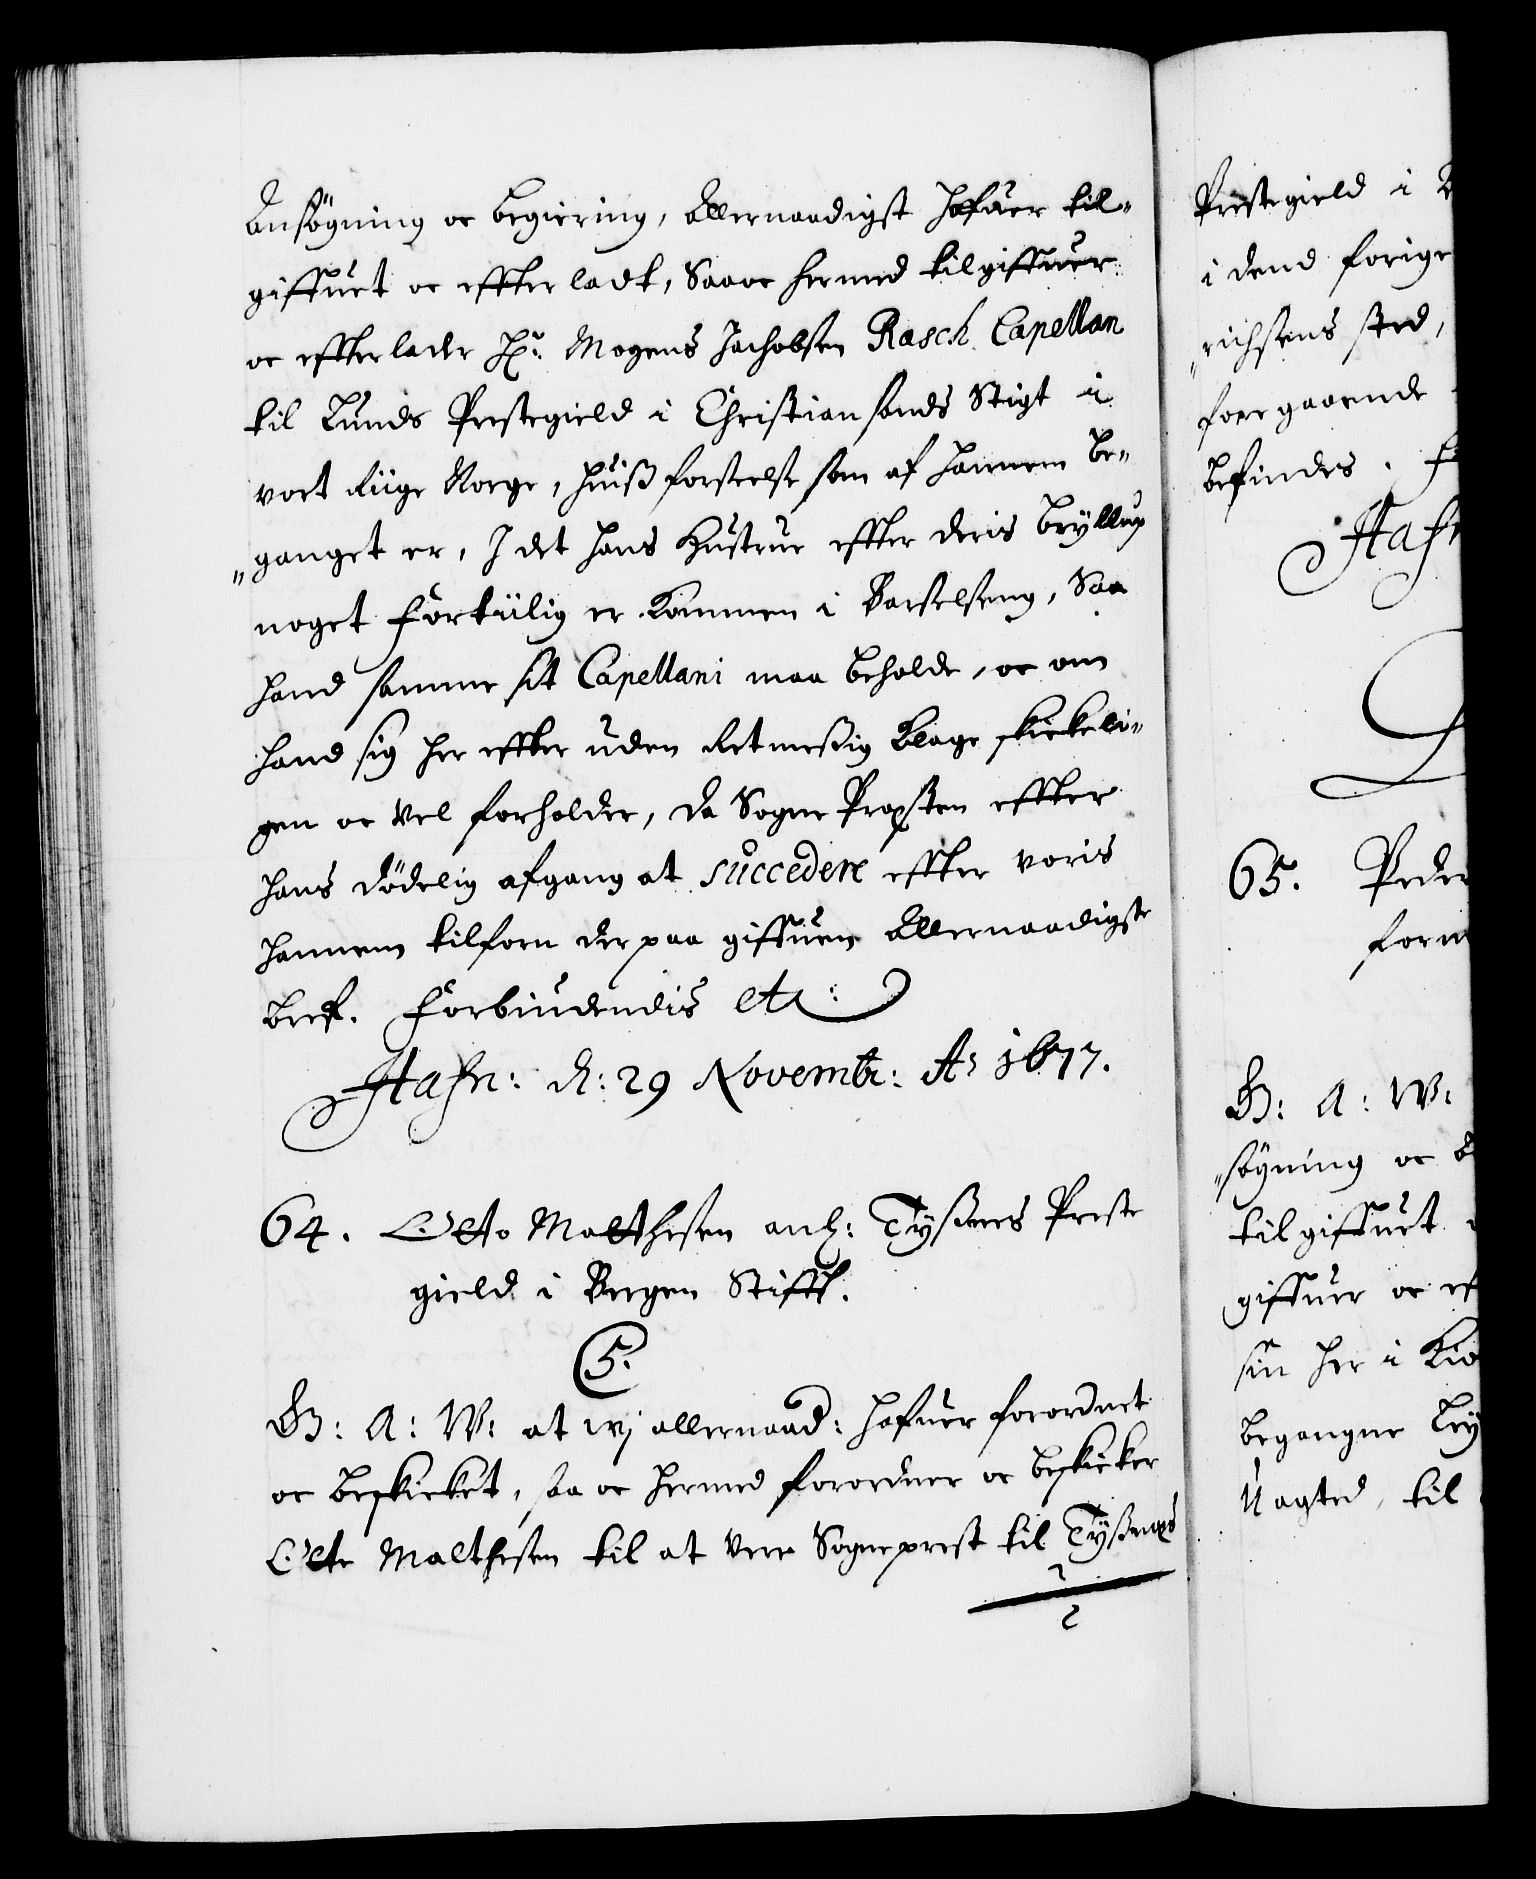 Ansögning oc begiering, Allernaadigst hafuer til-
giffuet oc effterladt, Saa oc hermed tilgiffuer
oc effterlader Hr. Mogens Jachobsen Rasch Capellan
til Lunds Prestegield i Christiansands Stigt i
vort Riige Norge, huiß forseelse som af hannem be-
„ganget er, J det hans Hustrue effter deris bryllup
noget for tiilig er kommen i Barselseng, Saa
hand samme sit Capellani maa beholde, oc om
hand sig her effter uden Retmeßig Klage skickeli-
gen oc vel forholder, da Sogne Presten effter
hans dödelig afgang at succedere effter voris
hannem tilforn der paa giffuen Allernaadigste
bref. Forbiudendis etc:
Hafn: d: 29 Novembr: Ao 1677.
64. Otto Malthesen anl: Tyßnes Preste
gield i Bergen Stifft.
C5.
G: A: W: at wj allernaad: hafuer forordnet
oc beskicket, saa oc hermed forordner oc beskicker
Otte Malthesen til at vere Sogneprest til Tyßnes
Prestegield i
i dend forige
„richsens sted,
foregaaende
befindes.
Hafn
65. Peder
forn
G: A: W:
„søgning oc
tilgiffuet
giffuer oc
sin her i Kiø
begangne
Uagted, til